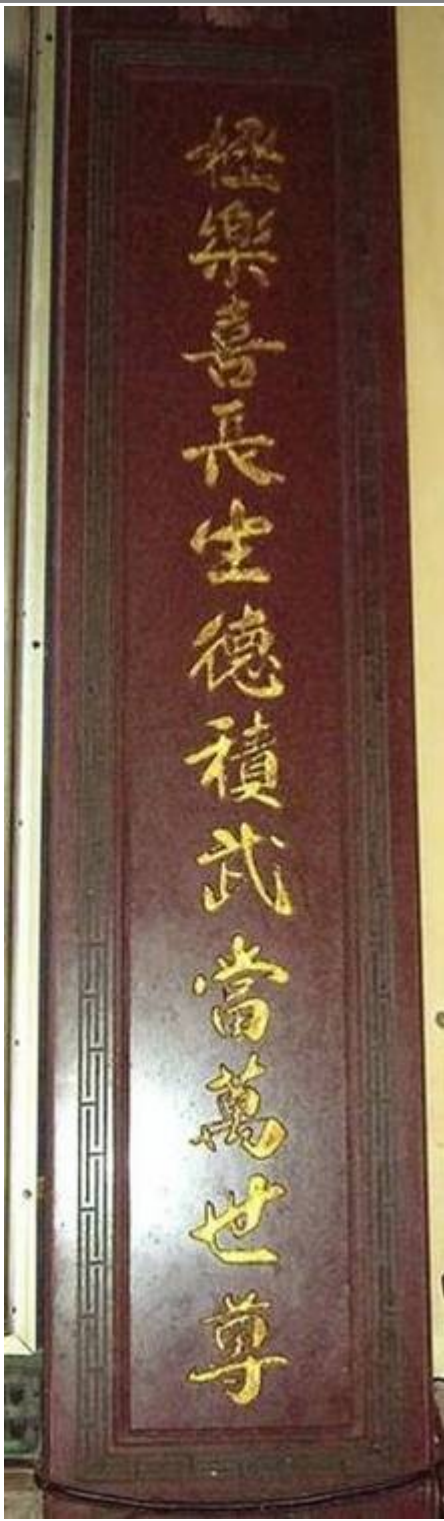 極樂喜長生德積武當萬世尊